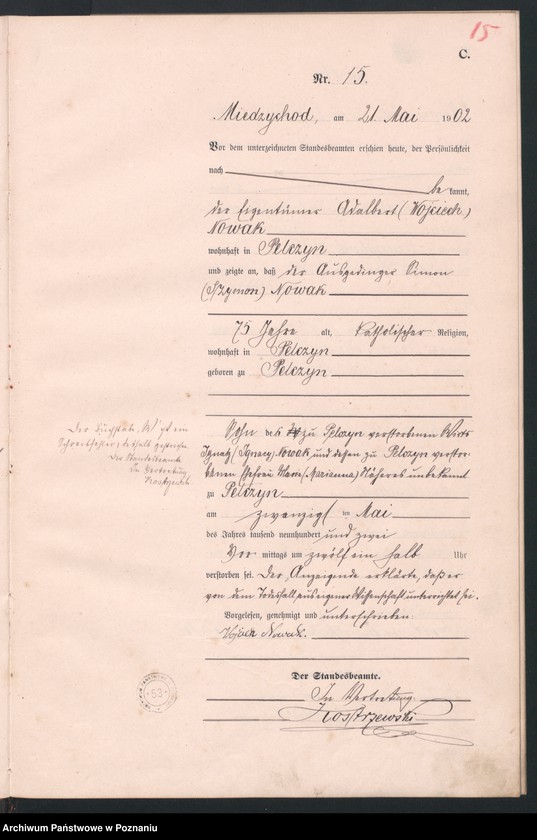 15
C.
Nr. 15.
Miedzychod, am 21. Mai 1902
Vor dem unterzeichneten Standesbeamten erschien heute, der Persönlichkeit
nach
be kannt,
der Eigentümer Adalbert (Wojciech)
Nowak
wohnhaft in Pelczyn
und zeigte an, daß der Ausgedinger Simon
(Szymon) Nowak
75 Jahre alt, katholischer Religion,
wohnhaft in Pelczyn
geboren zu Pelczyn
Sohn des zu Pelczyn verstorbenen Wirts
Ignatz (Ignacy) Nowak und dessen zu Pelczyn verstor-
benen Ehefrau (Marianna) Näheres unbekannt
Der Buchstabe "W" ist ein
Schreibfehler, deshalb gestrichen
Der Standesbeamte
In Vertretung
Kostrzewski
zu Pelczyn
am zwanzigst im Mai
des Jahres tausend neunhundert und zwei
Vor mittags um zwölf ein halb Uhr
verstorben sei. Der Anzeigende erklärte, daß er
von dem Todesfall aus eigener Wissenschaft unterrichtet sei.
Vorgelesen, genehmigt und unterschrieben
Nowak.
Der Standesbeamte.
In Vertretung.
Kostrzewski
53
Archiwum Państwowe w Poznaniu